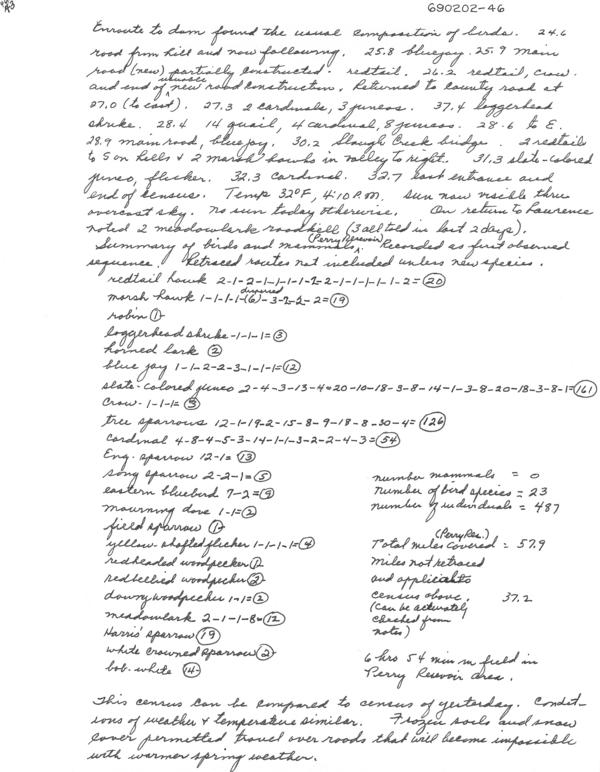 690202-46
Enroute to dam found the usual composition of birds. 24.6
road from hill and now following. 25.8 bluejay. 25.9 main
road (new) partially constructed. redtail. 26.2 redtail, crow.
and end of new road construction. Returned to county road at
27.0 (to east). 27.3 2 cardinals, 3 juncos. 37.4 loggerhead
shrike. 28.4 14 quail, 4 cardinal, 8 juncos. 28.6 to E.
28.9 main road, bluejay. 30.2 Slough Creek bridge. 2 redtails
to S on hills & 2 marsh hawks in valley to right. 31.3 slate-colored
junco, flicker. 32.3 cardinal. 32.7 east entrance and
end of census. Temp 32°F, 4:10 P.M. Sun now visible thru
overcast sky. No sun today otherwise. On return to Lawrence
noted 2 meadowlark roadkill (3 all told in last 2 days).
Summary of birds and mammals (Perry Resevoir). Recorded as first observed
sequence. Retraced routes not included unless new species.
redtail hawk 2-1-2-1-1-1-1-2-2-1-1-1-1-1-2=20
marsh hawk 1-1-1-1-(6)-3-2-2-2=19
robin 1
loggerhead shrike-1-1-1=3
horned lark 2
blue jay 1-1-2-2-3-1-1-1=12
slate-colored junco 2-4-3-13-4-20-10-18-3-8-14-1-3-8-20-18-3-8-1=161
Crow-1-1-1=3
tree sparrows 12-1-19-2-15-8-9-18-8-30-4=126
cardinal 4-8-4-5-3-14-1-1-3-2-2-4-3=54
Eng. sparrow 12-1=13
song sparrow 2-2-1=5
eastern bluebird 7-2=9
mourning dove 1-1=2
field sparrow 1
yellow-shafted flicker 1-1-1-1=4
redheaded woodpecker 1
redbellied woodpecker 2
downy woodpecker 1-1=2
meadowlark 2-1-1-8=12
Harris' sparrow 19
white crowned sparrow 2
bob-white 14
number mammals = 0
number of bird species = 23
number of individuals = 487
(Perry Res.)
Total miles covered = 57.9
miles not retraced
and applicable to
census above. 37.2
(can be accurately
checked from
notes)
6 hrs 54 min in field in
Perry Resevoir area.
This census can be compared to census of yesterday. Condit-
ions of weather & temperature similar. Frozen soils and snow
cover permitted travel over roads that will become impossible
with warmer spring weather.